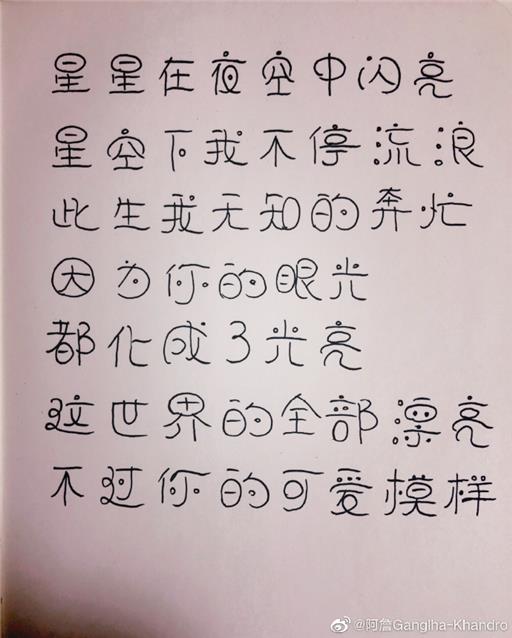 星星在夜空中闪亮
星空下我不停流浪
此生我无知的奔忙
因为你的眼光
都化成了光亮
这世界的全部漂亮
不过你的可爱模样
@阿詹Ganglha-Khandro